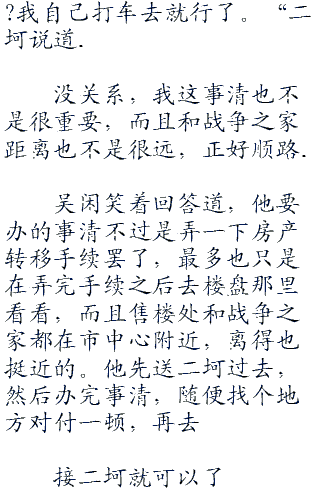 ?我自己打车去就行了。 “二
坷说道.
没关系，我这事清也不
是很重要，而且和战争之家
距离也不是很远，正好顺路.
吴闲笑着回答道，他要
办的事清不过是弄一下房产
转移手续罢了，最多也只是
在弄完手续之后去楼盘那里
看看，而且售楼处和战争之
家都在市中心附近，离得也
挺近的。他先送二坷过去，
然后办完事清，随便找个地
方对付一顿，再去
接二坷就可以了